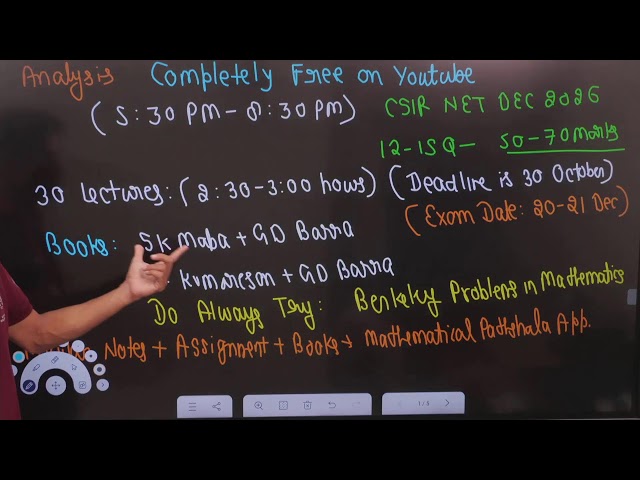 Analysis Completely Free on Youtube
(5:30 PM - 8:30 PM)
CSIR NET DEC 2026
12-15Q - 50-70 Marks
30 Lectures: (2:30-3:00 hours) (Deadline is 30 October)
(Exam Date: 20-21 Dec)
Books: SK Mapa + GD Barra
Kumareson + GD Barra
Do Always Try: Berkeley Problems in Mathematics
Notes + Assignment + Books → Mathematical Pathshala App.
1/8